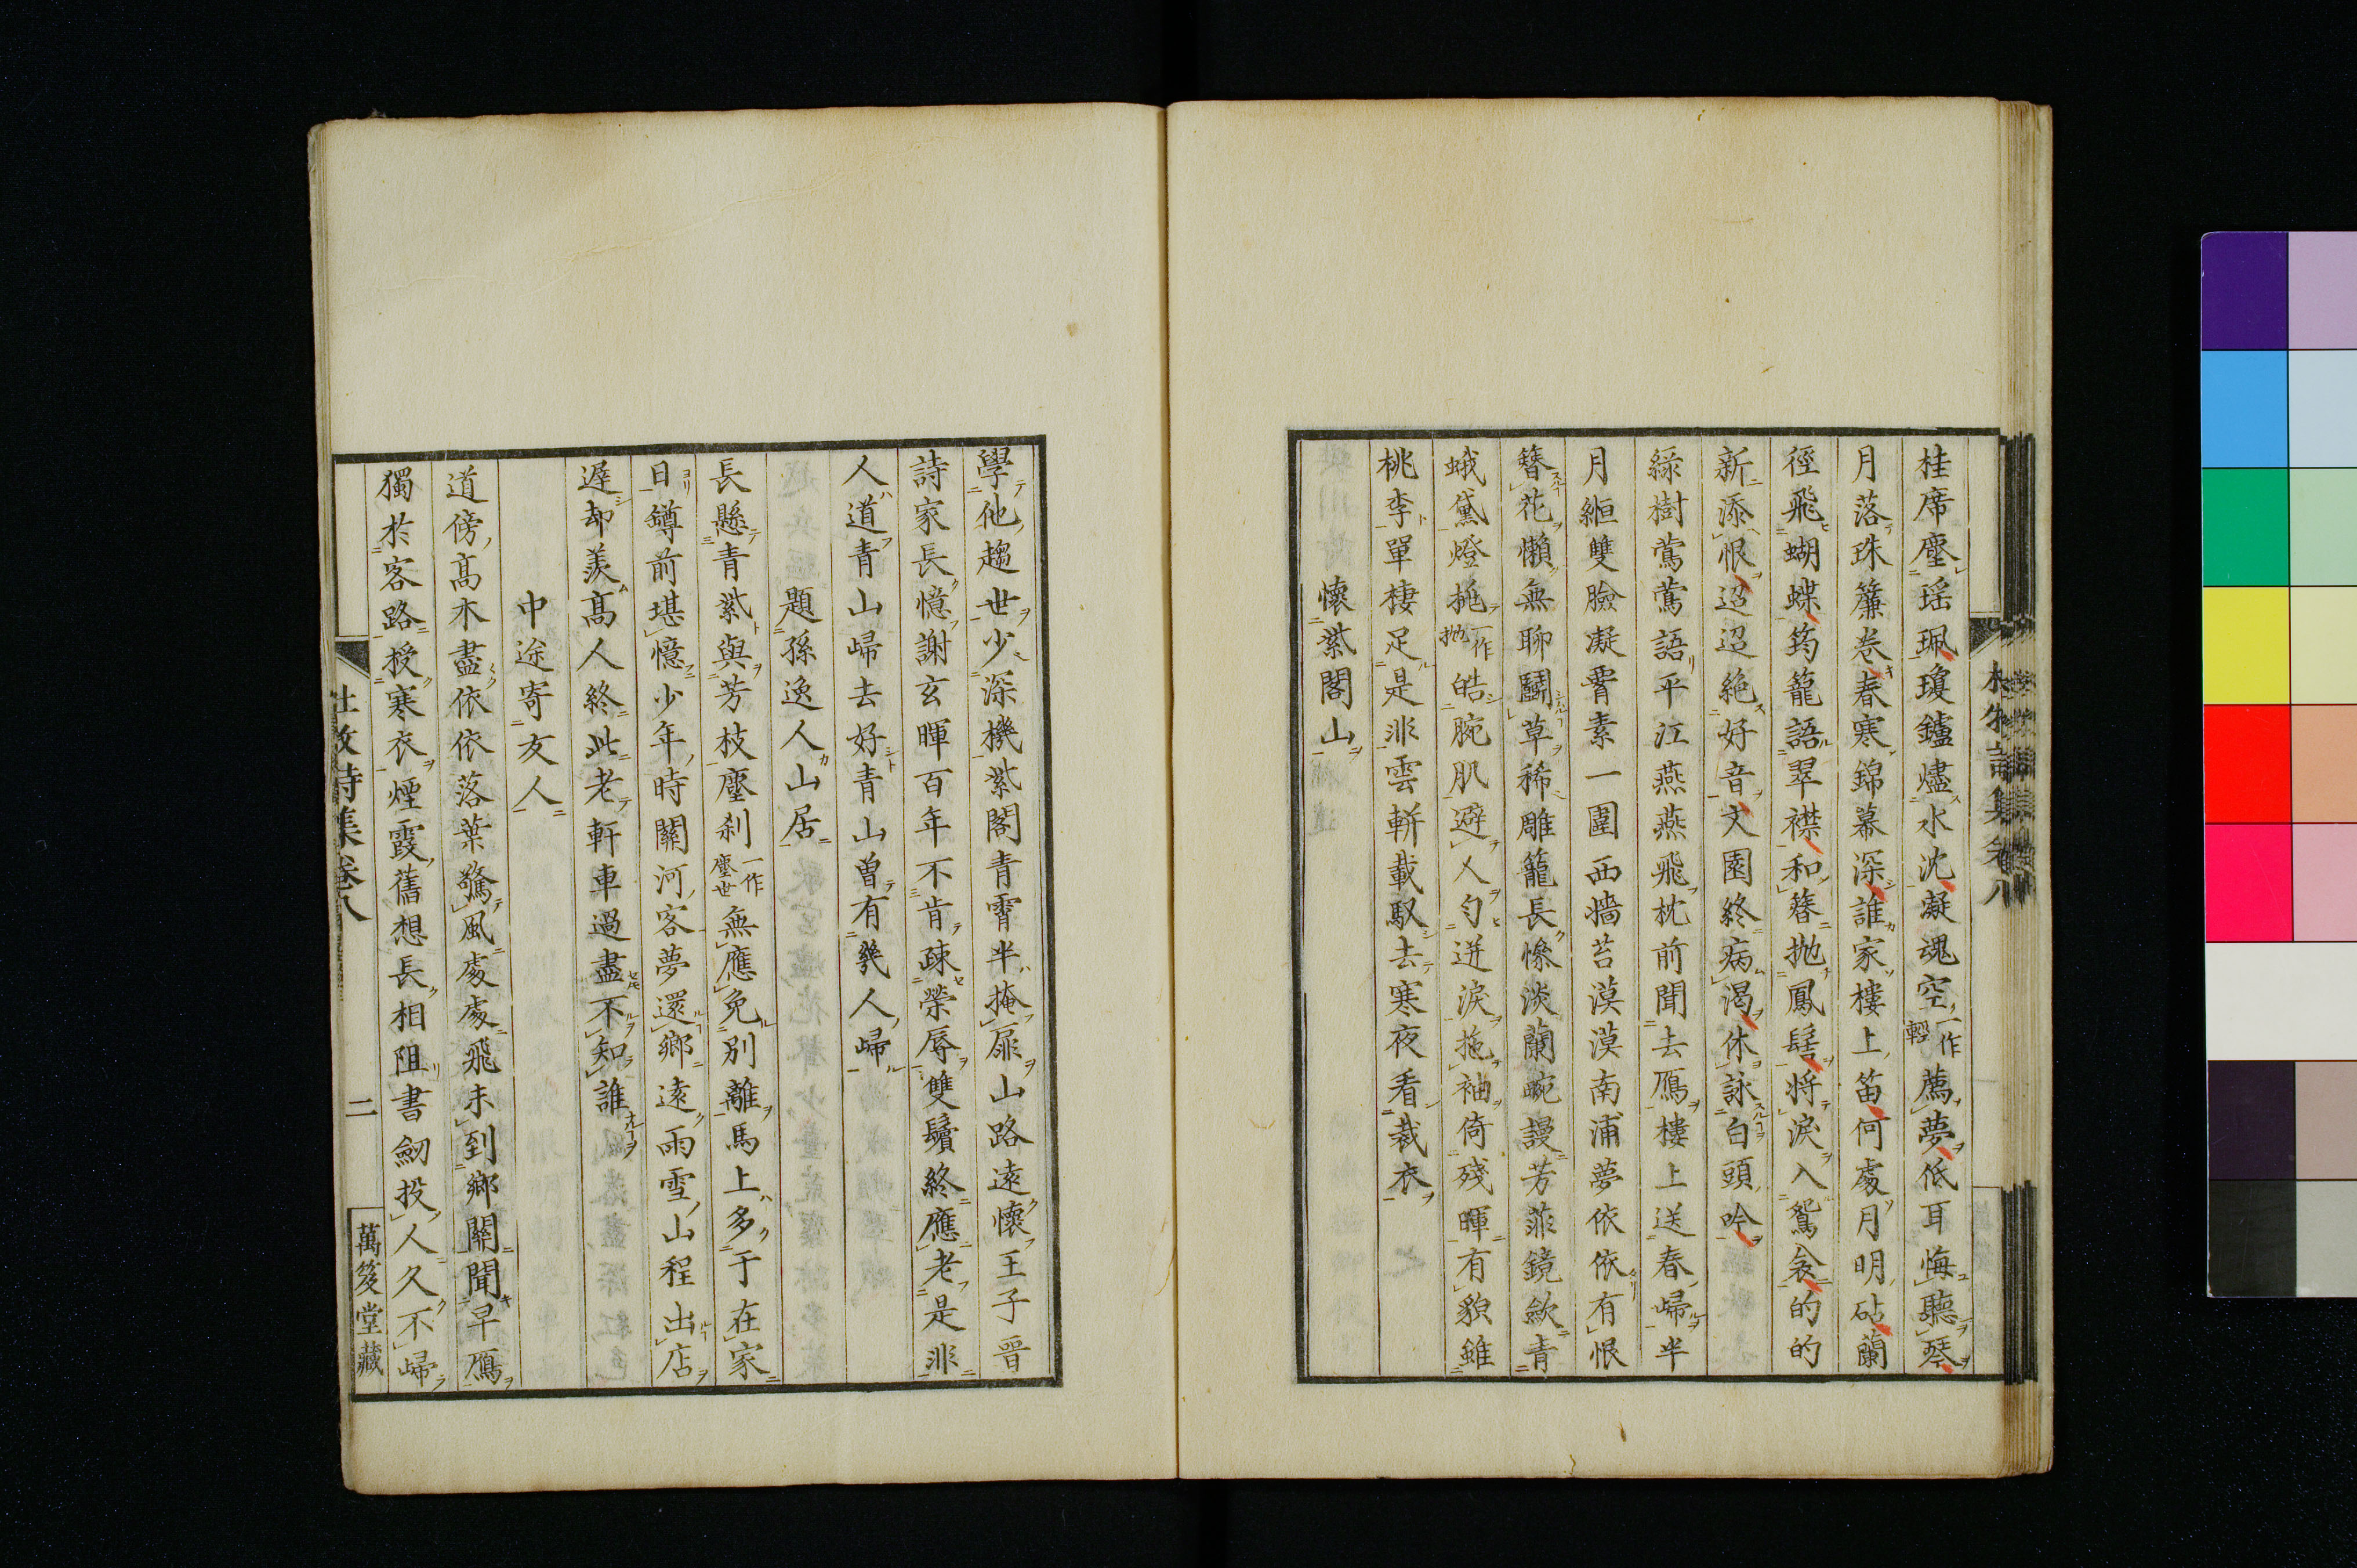 桂席塵瑶珮瓊鑪燼水沈凝魂空一作輕薦夢低耳悔聽琴
月落珠簾卷春寒錦幕深誰家樓上笛何處月明砧蘭
徑飛蝴蝶筠籠語翠襟和簪抛鳳髻將淚入鴛衾的的
新添恨迢迢絶好音文園終病渴休詠白頭吟
綠樹鶯鶯語平江燕燕飛枕前聞去鴈樓上送春歸半
月縆雙臉凝霄素一圍西墻苔漠漠南浦夢依依有恨
簪花懶無聊鬬草稀雕籠長慘淡蘭畹謾芳菲鏡斂青
蛾黛燈挑一作抛皓腕肌避人匀迸淚拖袖倚殘暉有貌雖
桃李單棲足是非雲輧載馭去寒夜看裁衣
懷紫閣山
學他趨世少深機紫閣青霄半掩扉山路遠懷王子晋
詩家長憶謝玄暉百年不肯疎榮辱雙鬢終應老是非
人道青山歸去好青山曽有幾人歸
題孫逸人山居
長懸青紫與芳枝塵刹一作塵世無應免別離馬上多于在家
日罇前堪憶少年時關河客夢還鄉遠雨雪山程出店
遲却羨高人終此老軒車過盡不知誰
中途寄友人
道傍高木盡依依落葉驚風處處飛未到鄉關聞早鴈
獨於客路授寒衣煙霞舊想長相阻書劒投人久不歸
杜牧詩集卷八
二
萬笈堂藏